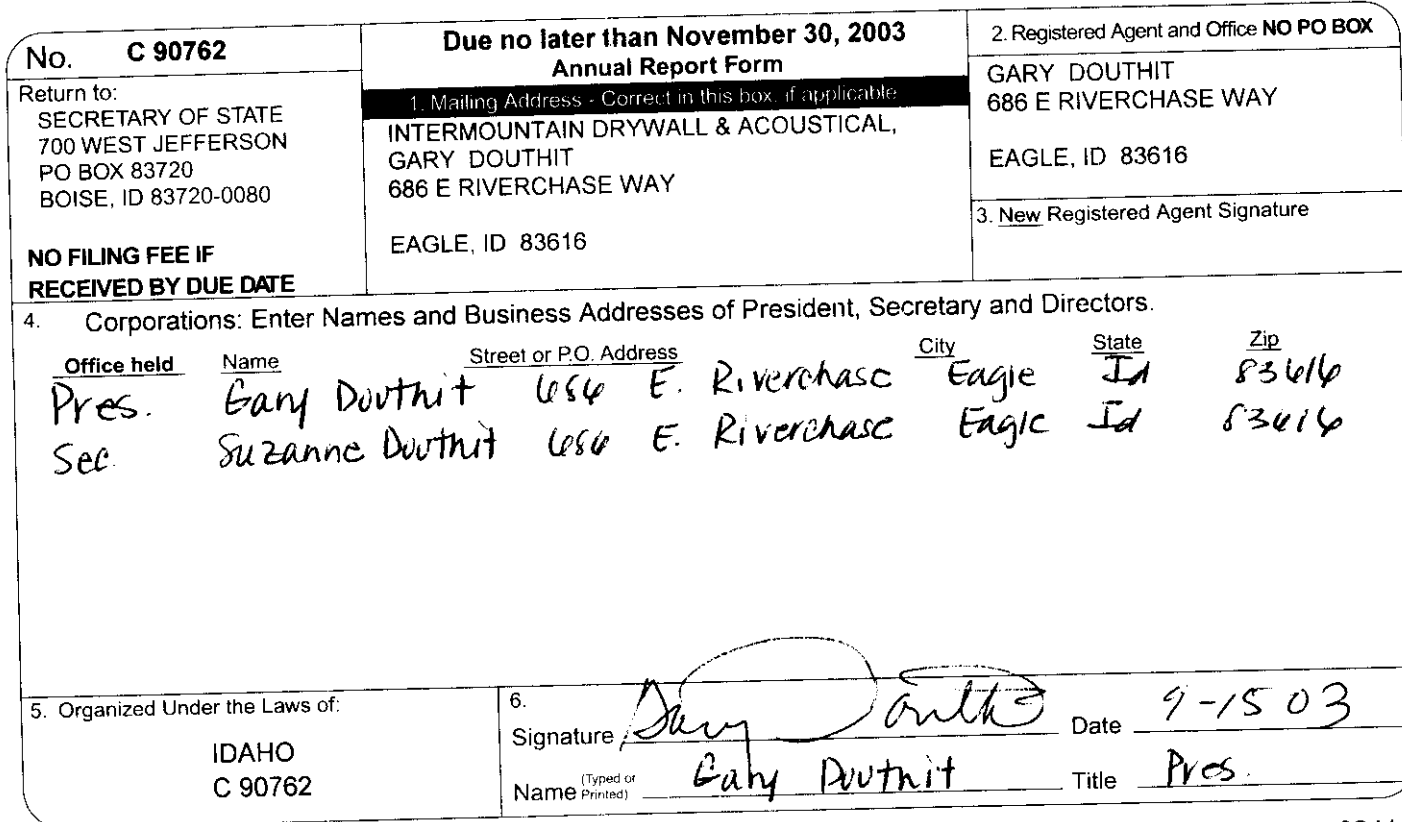 No. C 90762
Return to:
SECRETARY OF STATE
700 WEST JEFFERSON
PO BOX 83720
BOISE, ID 83720-0080
NO FILING FEE IF
RECEIVED BY DUE DATE
Due no later than November 30, 2003
Annual Report Form
1. Mailing Address - Correct in this box, if applicable
INTERMOUNTAIN DRYWALL & ACOUSTICAL,
GARY DOUTHIT
686 E RIVERCHASE WAY
EAGLE, ID 83616
2. Registered Agent and Office NO PO BOX
GARY DOUTHIT
686 E RIVERCHASE WAY
EAGLE, ID 83616
3. New Registered Agent Signature
4. Corporations: Enter Names and Business Addresses of President, Secretary and Directors.
Office held Name Street or P.O. Address City State Zip
Pres. Gary Douthit 686 E. Riverchase Eagle Id 83616
Sec. Suzanne Douthit 686 E. Riverchase Eagle Id 83616
5. Organized Under the Laws of:
IDAHO
C 90762
6.
Signature Gary Douthit Date 9-15 03
Name (Typed or Printed) Gary Douthit Title Pres.